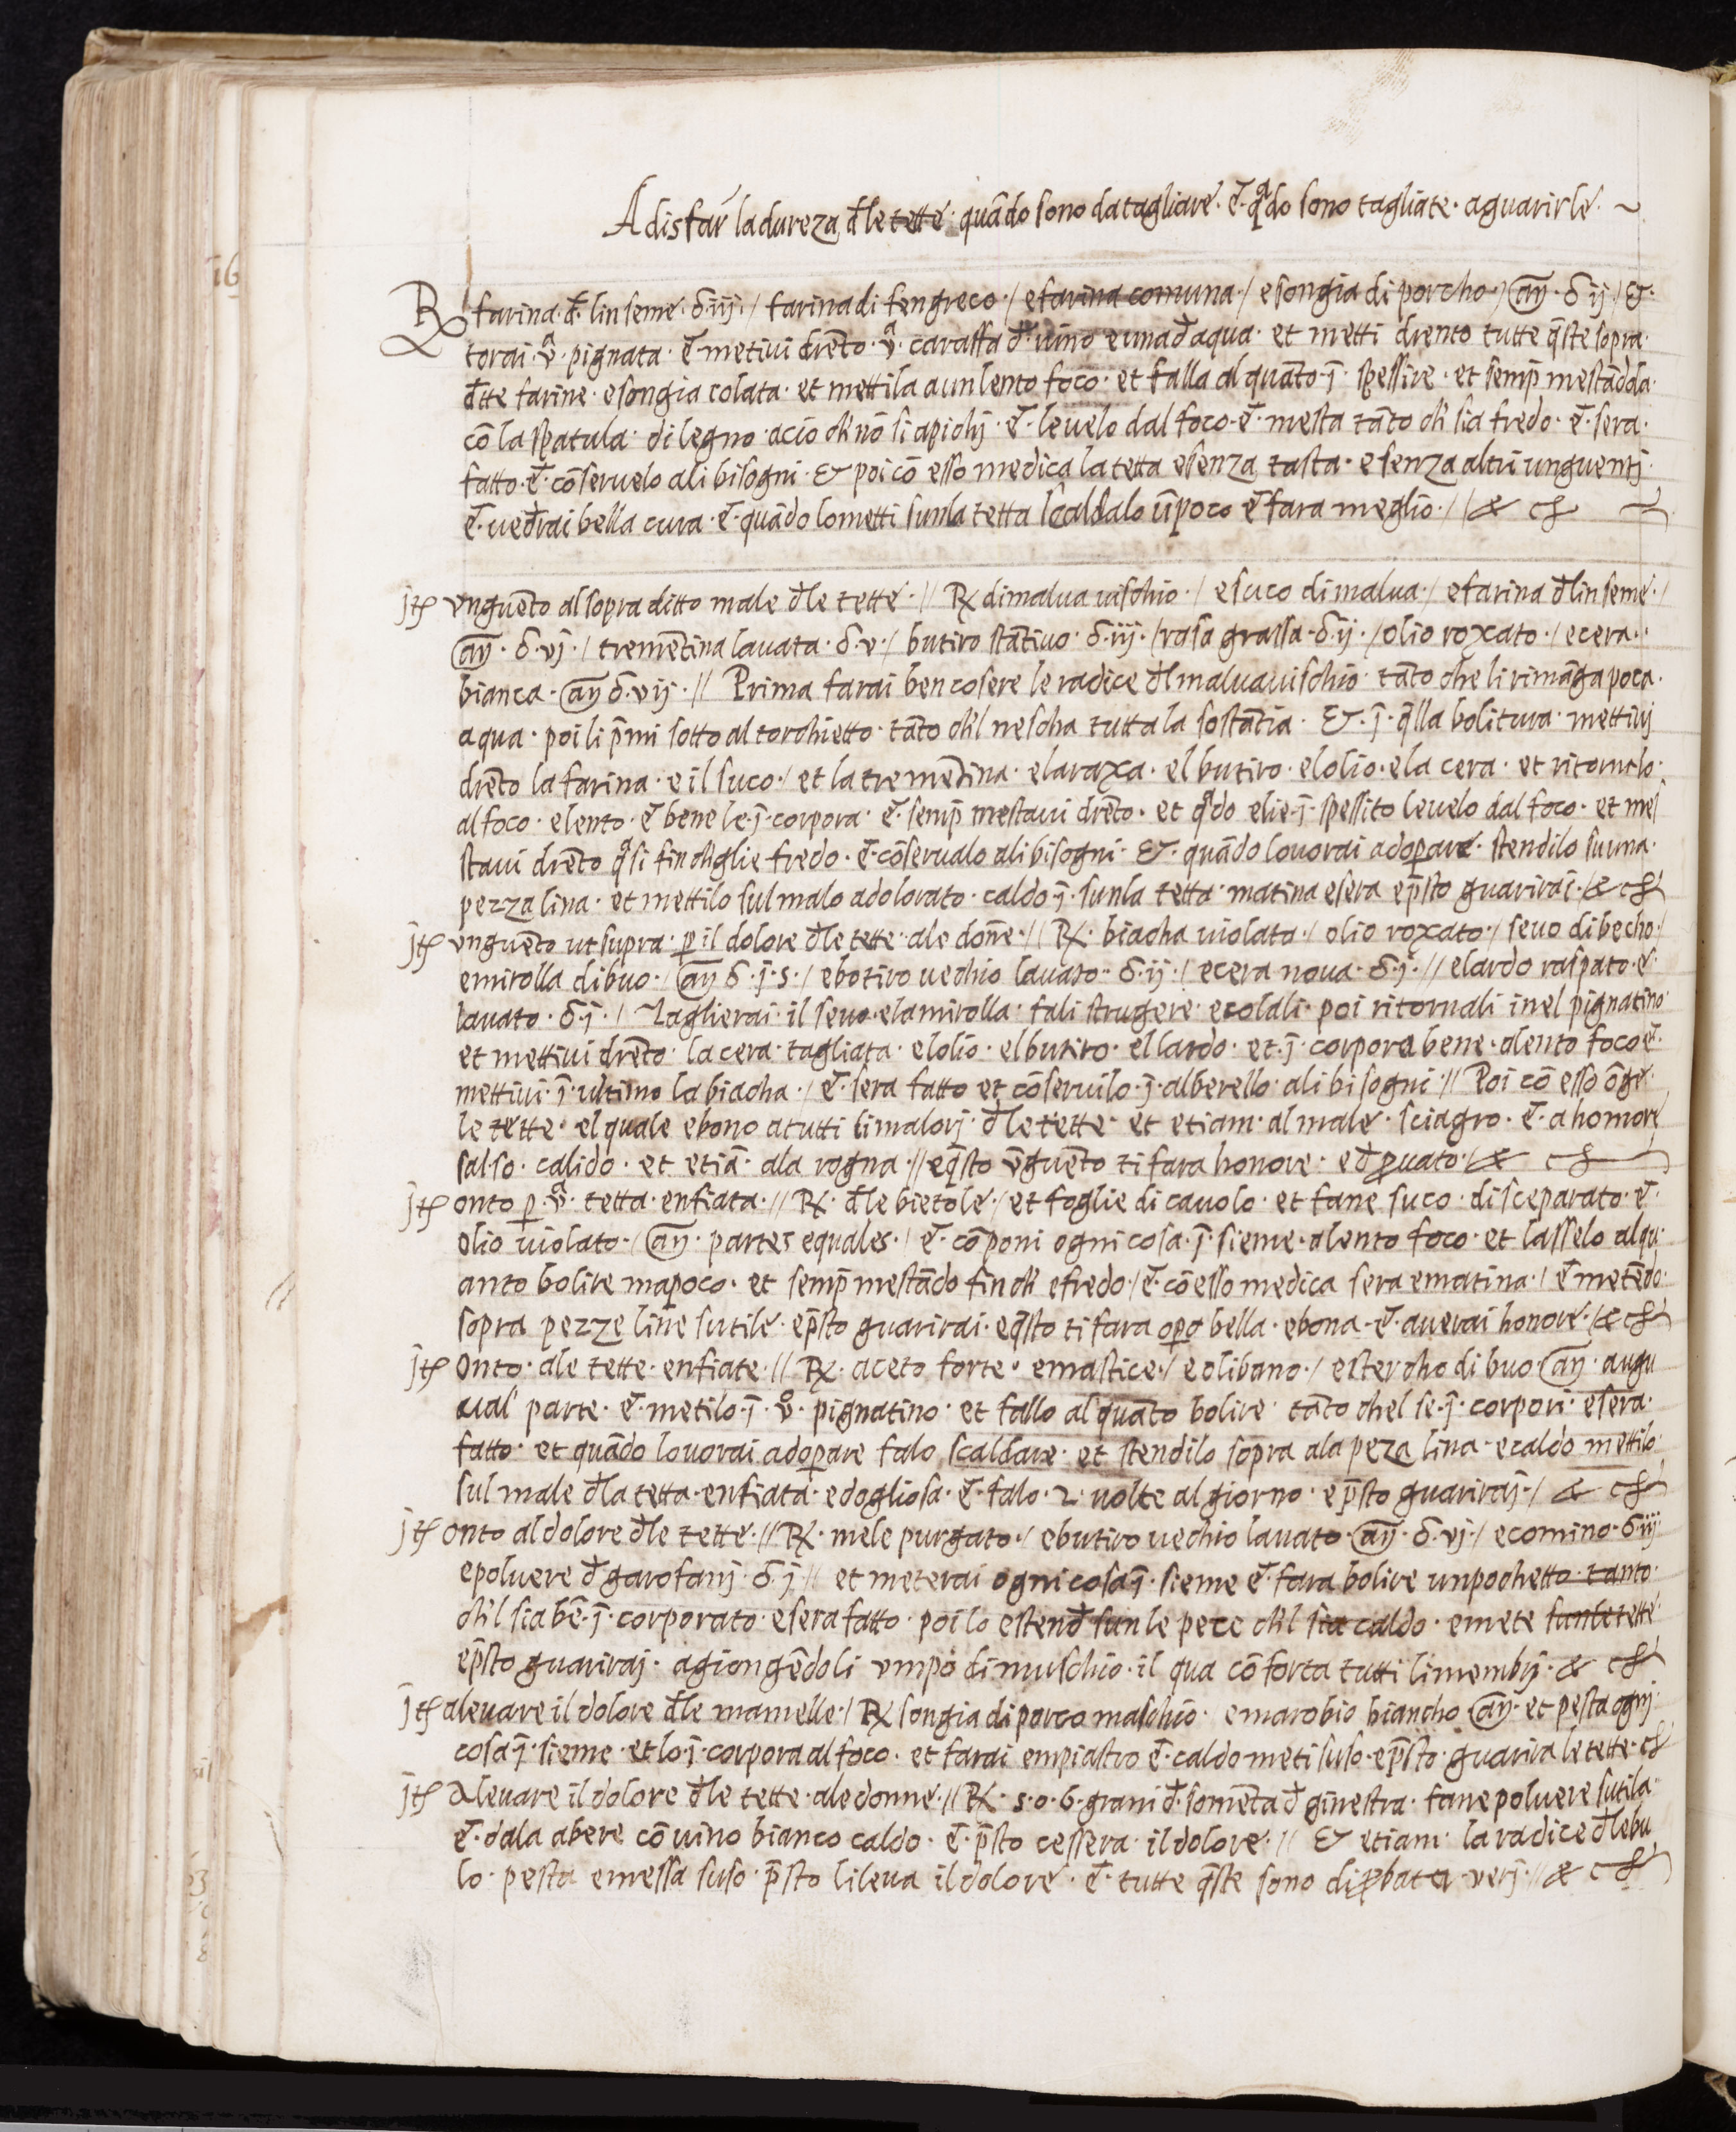 A disfar la dureza đle tette · quãdo sono da tagliare · ē · qᵃdo sono tagliate · a guarirle · ~
℞ farina · đ · lin seme · δ · iij · / farina di fengreco · / e farina comuna · / e songia di porcho · / añ · δ ij · / & ·
torai · vᵃ · pignata · ē · metivi drẽto · vᵃ · carassa đ · vino e una đ aqua · et metti drento tutte q̃ste sopra ·
đtte farine · e songia colata · et mettila a un lento foco · et falla al quãto · ĩ · spessire · et semp̃ mestãdola ·
cõ la spatula · di legno · acio ch' nõ si apichj · ē · levelo dal foco · ē · mesta tãto ch' sia fredo · ē · sera ·
fatto · ē · cõservelo ali bisogni · & poi cõ esso medica la tetta e senza tasta · e senza altri unguentj ·
ē · ueđrai bella cura · ē · quãdo lo metti sun la tetta scaldalo ũ poco ē fara meglio · / &
jtẽ vnguẽto al sopra ditto male đle tette · // ℞ di malua uischio · / e suco di malua · / e farina đ lin seme · /
añ · δ · vj · / tremẽtina lauata · δ · v · / butiro stãtiuo · δ · iij · / rasa grassa · δ · ij · / olio roxato · / e cera ·
bianca · añ δ · vij · // Prima farai ben cosere le radice đl maluauischio · tãto che li rimãga poca ·
aqua · poi li p̃mi sotto al torchietto · tãto ch'l nescha tutta la sostãtia · & · ĩ · q̃lla bolitura · mettivj
drẽto la farina · e il suco · / et la tremẽtina · e la raxa · el butiro · el olio · e la cera · et ritornelo ·
al foco · e lento · ē bene le · ĩ · corpora · ē · semp̃ mestaui drẽto · et qᵃdo elie · ĩ · spessito leuelo dal foco · et mes
staui drẽto qᵃsi fin ch' glie fredo · ē · cõserualo ali bisogni · & · quãdo lo uorai adoꝑare · stendilo su una ·
pezza lina · et mettilo sul malo adolorato · caldo · ĩ · sun la tetta · matina e sera e p̃sto guarirai · / &
jtẽ vnguẽto ut supra · ꝑ il dolore đle tette · ale doñe · // ℞ · biacha uiolata · / olio roxato · / seuo di becho · /
e mirolla di buo · / añ δ · j · s · / e botiro uechio lauato · δ · ij · / e cera noua · δ · j · // e lardo raspato · e ·
lauato · δ · j · / Taglierai · il seuo · e la mirolla · fali strugere · e colali · poi ritornali inel pignatino ·
et mettiui drẽto · la cera · tagliata · el olio · el butiro · el lardo · et · ĩ · corpora bene · a lento foco ē ·
mettiui · ĩ · ultimo la biacha · / ē · sera fatto et cõseruilo · ĩ · alberello · ali bisogni · // Poi cõ esso õge ·
le tette · el quale e bono a tutti li malorj · đle tette · et etiam · al male · sciagro · ē · a homore
salso · calido · et etiã · ala rogna · // e q̃sto ũguẽto ti fara honore · e đ ꝓuato · / &
jtẽ onto ꝑ · vᵃ · tetta · enfiata · // ℞ · đle bietole · / et foglie di cauolo · et fane suco · disceparato · ē ·
olio uiolato · / añ · partes equales · / ē · cõponi ogni cosa · ĩ · sieme · a lento foco · et lasselo alqu
anto bolire ma poco · et semp̃ mestãdo fin ch' e fredo · / ē · cõ esso medica sera e matina · / ē metẽdo ·
sopra pezze line sutile · e p̃sto guarirai · e q̃sto ti fara oꝑa bella · e bona · ē · auerai honore · / &
jtẽ Onto · ale tette · enfiate · // ℞ · aceto forte · e mastice · / e olibano · / e stercho di buo · añ · augu
ual parte · ē · metilo · ĩ · vᵒ · pignatino · et fallo al quãto bolire · tãto chel se · ĩ · corpori · e sera ·
fatto · et quãdo lo uorai adoꝑare falo scaldare · et stendilo sopra ala peza lina · e caldo mettilo ·
sul male đla tetta · enfiata · e dogliosa · ē · falo · 2 · uolte al giorno · e p̃sto guarirai · / &
jtẽ Onto al dolore đle tette · // ℞ · mele purgato · / e butiro uechio lauato · añ · δ · vj · / e comino · δ · iij
e poluere đ garofanj · δ · j · // et meterai ogni cosa ĩ · sieme ē · fara bolire un pochetto · tanto ·
ch'l sia bẽ · ĩ · corporato · e sera fatto · poi lo estenđ sun le pece ch'l sia caldo · e mete sun le tette ·
e p̃sto guarirai · agiongẽdoli vmpo di muschio · il qua cõforta tutti li membrj · &
jtẽ a leuare il dolore đle mamelle · / ℞ songia di porco maschio · e marobio biancho añ · et pesta ognj ·
cosa ĩ · sieme · et lo · ĩ · corpora al foco · et farai empiastro ē · caldo meti suso · e p̃sto · guarira le tette ·
jtẽ A leuare il dolore đle tette · ale donne · // ℞ · 5 · o · 6 · grani đ · somẽta đ ginestra · fane poluere sutila ·
ē · dala a bere cõ uino bianco caldo · ē · p̃sto cessera · il dolore · // & etiam · la radice đ lebu
lo · pesta e messa suso · p̃sto li leua il dolore · ē · tutte q̃ste sono di ꝓbata · verj · // &